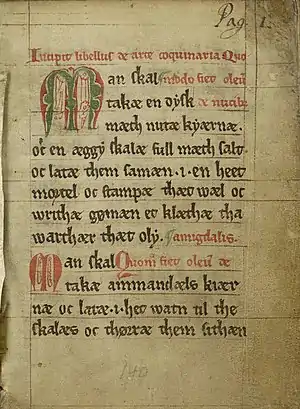 Pag. 1.
Incipit libellus de arte coquinaria Quo
Man skal modo fiet oleū
takæ en dysk de nucibꝫ
mæth nutæ kyærnæ.
oc en æggy skalæ full mæth salt
oc latæ them samæn · i · en heet
mortel oc stampæ thæt wæl oc
writhæ gømæn et klæthæ tha
warthær thæt oly. amigdalis.
Man skal Quom̅ fiet oleū de
takæ ammandæls kiær
næ oc latæ · i · het watn til the
skalæs oc thorræ them sithæn
140